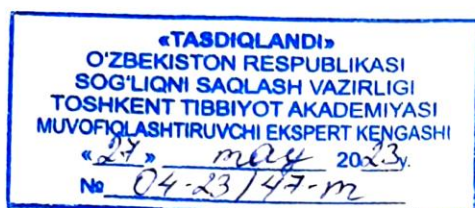 «TASDIQLANDI»
O'ZBEKISTON RESPUBLIKASI
SOG'LIQNI SAQLASH VAZIRLIGI
TOSHKENT TIBBIYOT AKADEMIYASI
MUVOFIQLASHTIRUVCHI EKSPERT KENGASHI
«27» may 2023y.
№ 04-23/47-m